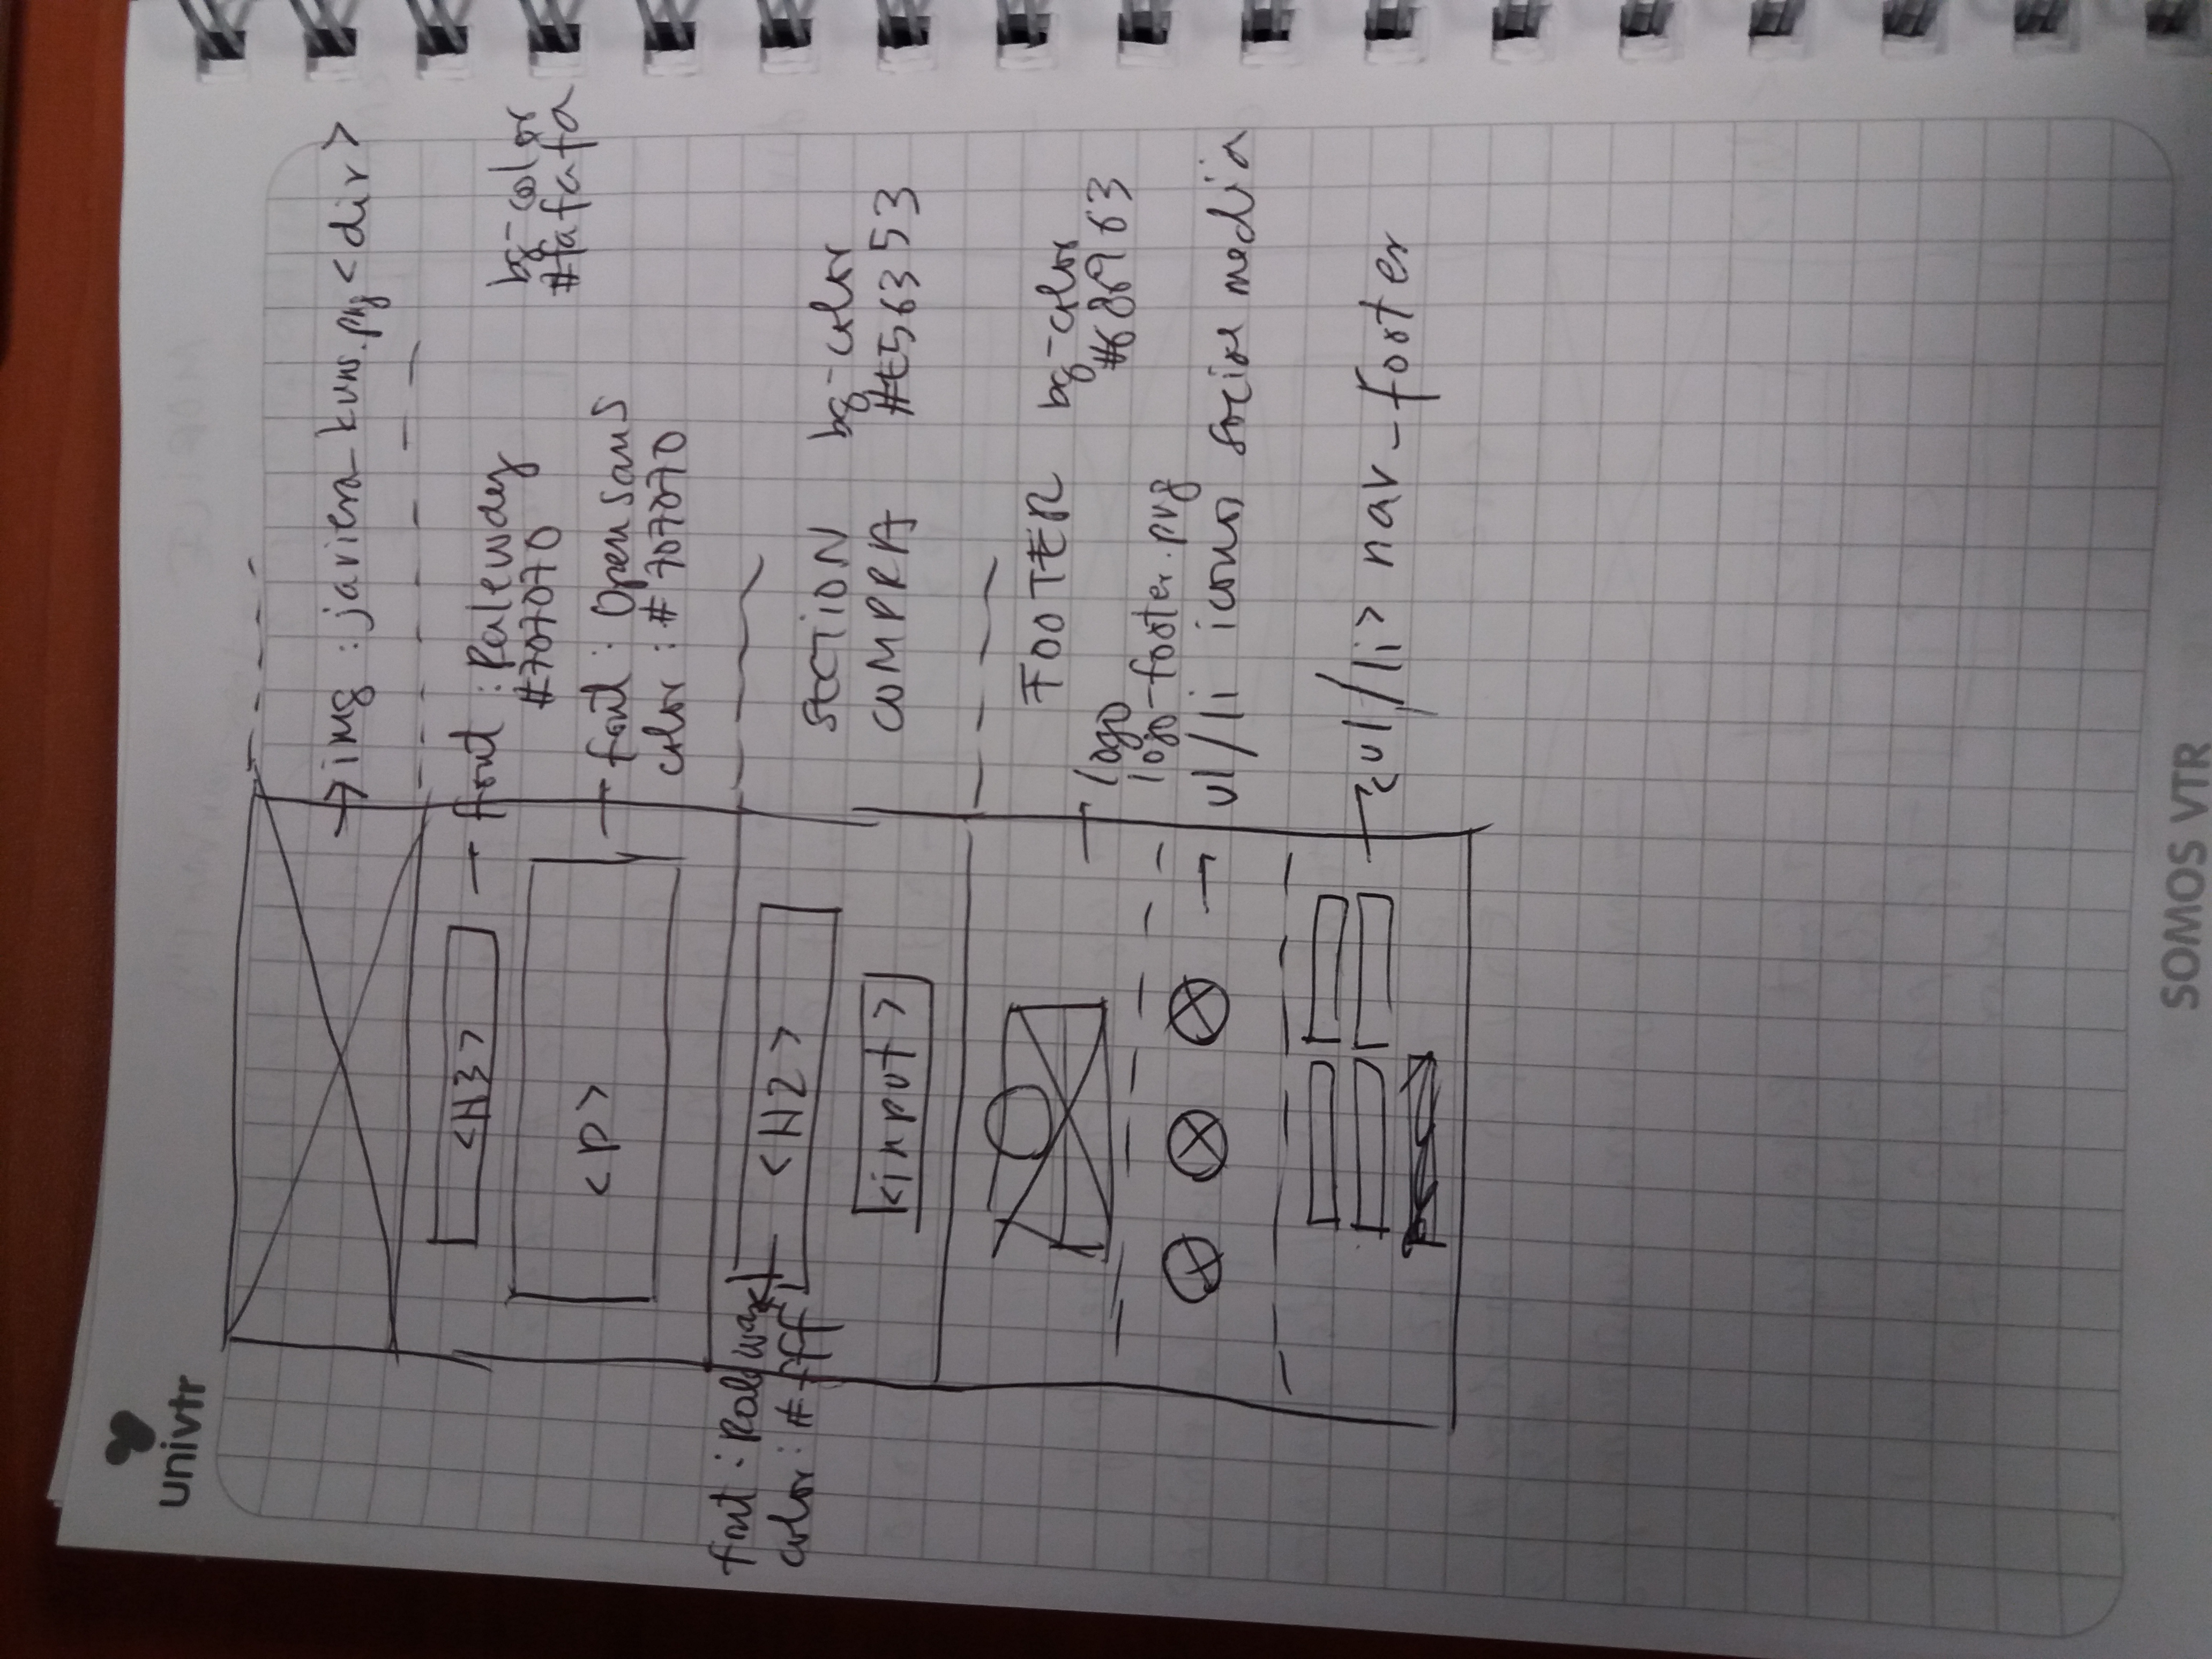 univtr
img : javiera_kuns.png <dir>
<H3>
font : Raleway
#707070
bg-color
#fafafa
<P>
font : Open Sans
color : #707070
font : Raleway
color : #fff
<H2>
SECTION
COMPRA
bg-color
#E56353
<input>
FOOTER
bg-color
#686963
logo
logo-footer.png
ul/li iconos social media
<ul/li> nav_footer
SOMOS VTR